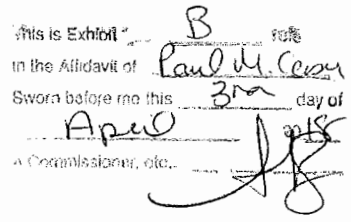 This is Exhibit " B
in the Affidavit of Paul M.
Sworn before me this 3rd day of
April 2018
A Commissioner, etc.